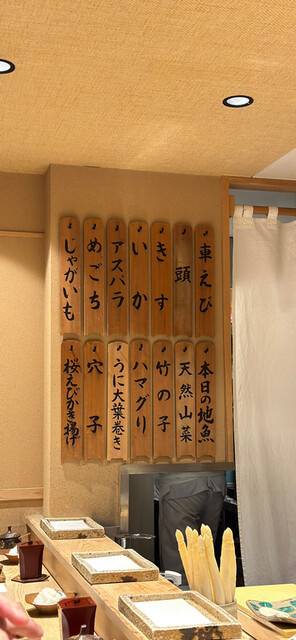 車えび
頭
きす
いか
アスパラ
めごち
じゃがいも
本日の地魚
天然山菜
竹の子
ハマグリ
うに大葉巻き
穴子
桜えびかき揚げ